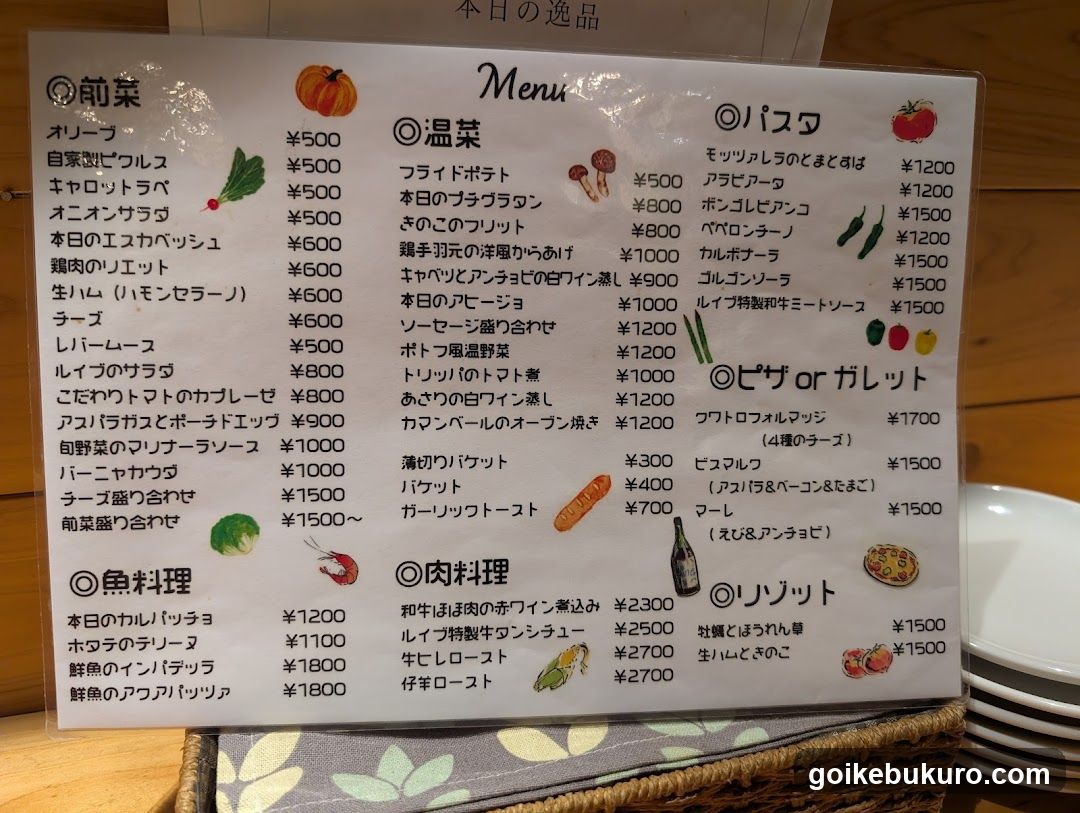 本日の逸品
Menu
◎前菜
オリーブ ¥500
自家製ピクルス ¥500
キャロットラペ ¥500
オニオンサラダ ¥500
本日のエスカベッシュ ¥600
鶏肉のリエット ¥600
生ハム（ハモンセラーノ） ¥600
チーズ ¥600
レバームース ¥500
ルイブのサラダ ¥800
こだわりトマトのカプレーゼ ¥800
アスパラガスとポーチドエッグ ¥900
旬野菜のマリナーラソース ¥1000
バーニャカウダ ¥1000
チーズ盛り合わせ ¥1500
前菜盛り合わせ ¥1500～
◎魚料理
本日のカルパッチョ ¥1200
ホタテのテリーヌ ¥1100
鮮魚のインパデッラ ¥1800
鮮魚のアクアパッツァ ¥1800
◎温菜
フライドポテト ¥500
本日のプチグラタン ¥800
きのこのフリット ¥800
鶏手羽元の洋風からあげ ¥1000
キャベツとアンチョビの白ワイン蒸し ¥900
本日のアヒージョ ¥1000
ソーセージ盛り合わせ ¥1200
ポトフ風温野菜 ¥1200
トリッパのトマト煮 ¥1000
あさりの白ワイン蒸し ¥1200
カマンベールのオーブン焼き ¥1200
薄切りバケット ¥300
バケット ¥400
ガーリックトースト ¥700
◎肉料理
和牛ほほ肉の赤ワイン煮込み ¥2300
ルイブ特製牛タンシチュー ¥2500
牛ヒレロースト ¥2700
仔羊ロースト ¥2700
◎パスタ
モッツァレラのとまとそば ¥1200
アラビアータ ¥1200
ボンゴレビアンコ ¥1500
ペペロンチーノ ¥1200
カルボナーラ ¥1500
ゴルゴンゾーラ ¥1500
ルイブ特製和牛ミートソース ¥1500
◎ピザ or ガレット
クワトロフォルマッジ ¥1700
（4種のチーズ）
ビスマルク ¥1500
（アスパラ&ベーコン&たまご）
マーレ ¥1500
（えび&アンチョビ）
◎リゾット
牡蠣とほうれん草 ¥1500
生ハムときのこ ¥1500
goikebukuro.com